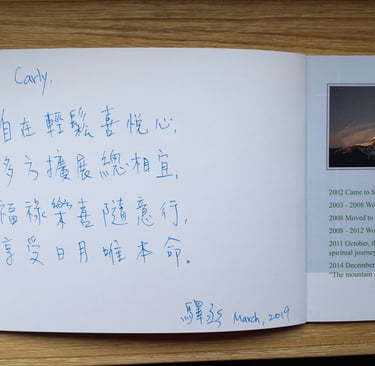 Carly,
自在輕鬆喜悅心,
多方擴展總相宜,
福祿樂喜隨意行,
享受日月唯本命。
March, 2019
2002 Came to S
2003 - 2008 Wo
2008 Moved to
2008 - 2012 Wo
2011 October, th
spiritual journey
2014 December
"The mountain